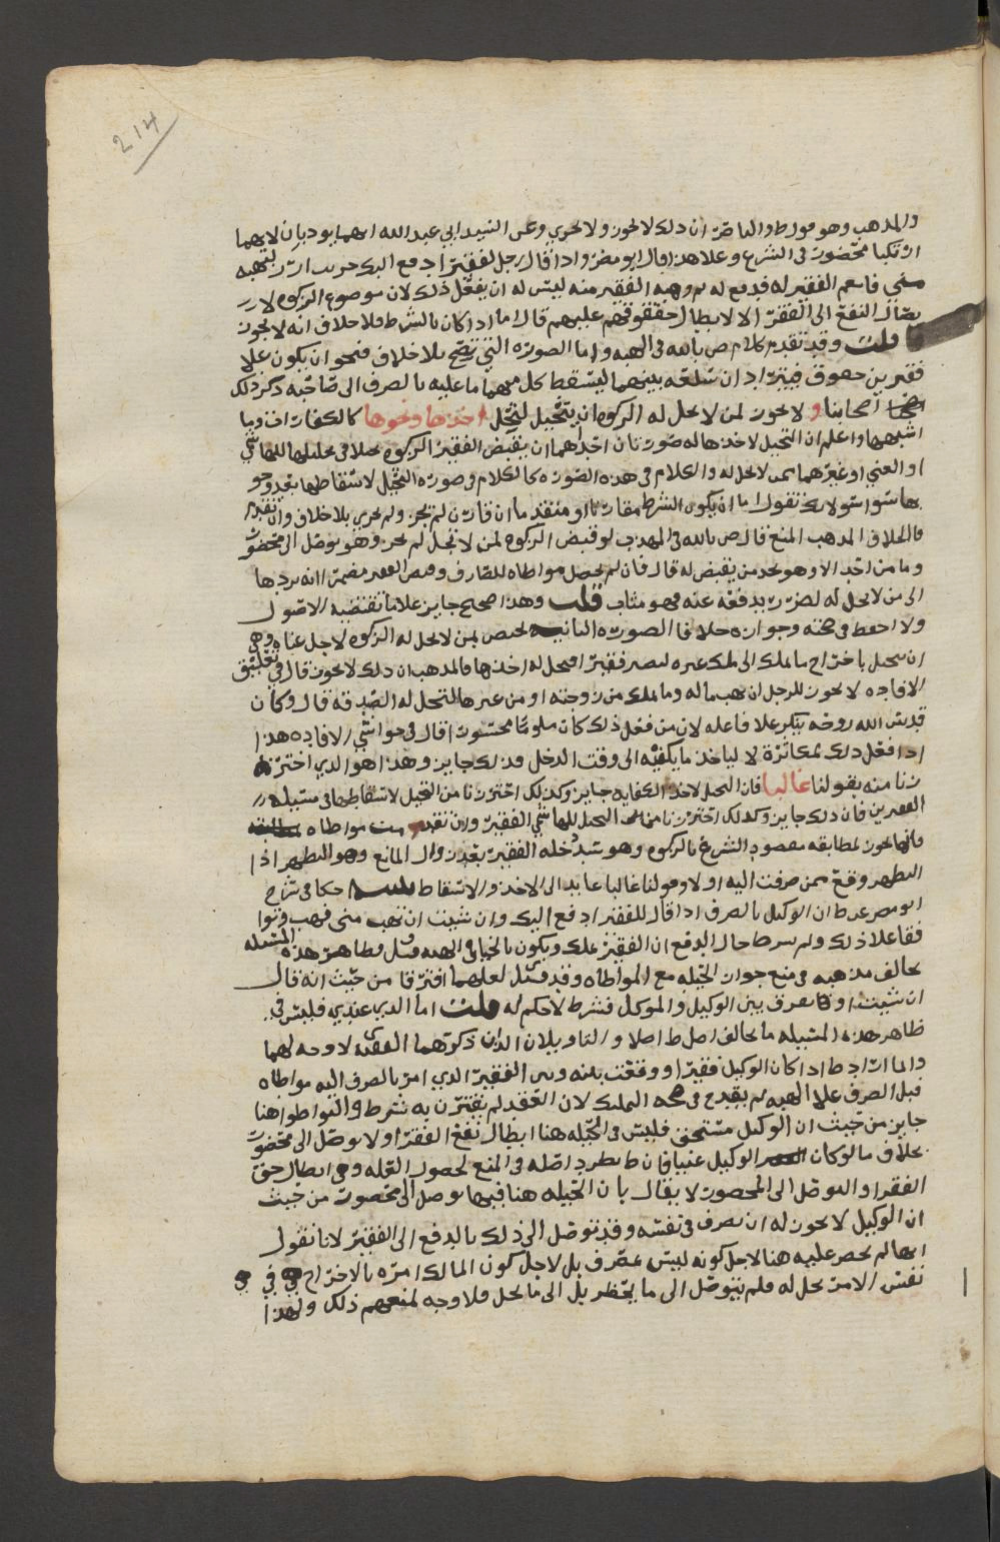 214
والمذهب وهو قول ط والناصر ان ذلك لا يجوز ولا يجزي وعن السيد ابي عبدالله انهما يودبان لانهما
ارتكبا محضورا في الشرع وعلا هذا قال ابو مضر واذا قال رجل لفقير ادفع اليك لتهبه
مني فانعم الفقير له فدفع له ثم وهبه الفقير منه ليس له ان يفعل ذلك لان موضوع الزكوه
ايصال النفع الى الفقرا لا لابطال حقوقهم عليهم قال اما اذا كان بالشرط فلا خلاف انه لا يجوز
قلت وقد تقدم كلام ص بالله في الهبه واما الصوره التي تصح بلا خلاف فنحو ان يكون علا
فقيرين حقوق فيتراد ان سلعه بينهما ليسقط كل منهما ما عليه بالصرف الى صاحبه ذكر ذلك
اصحابنا و لا يجوز لمن لا يحل له الزكوه ان يتحيل لتحل اخذها ونحوها كالكفارات وما
اشبهها واعلم ان التحيل لاخذها له صورتان احداهما ان يقبض الفقير الزكوه تحليلها للهاشمي
او الغني او غيرهما ممن لا تحل له والكلام في هذه الصوره كالكلام في صوره التحيل لاسقاطها بعد وجو
بها سوا سوا لانك تقول اما ان يكون الشرط مقارنا او متقدما ان قارن لم يجز ولم يجزي بلا خلاف وان تقدم
فالخلاف المذهب المنع قال ص بالله في المهذب لو قبض الزكوه لمن لا تحل لم يجز وهو توصل الى محضور
وما من احد الا وهو يجد من يقبض له قال فان لم يحصل مواطاه للصارف وقبض الفقير مضمرا انه يردها
الى من لا تحل له لضرر يدفعه عنه فهو مثاب قلت وهذا صحيح جايز علا ما تقتضيه الاصول
ولا احفظ في صحته وجوازه خلافا الصوره الثانيه تختص بمن لا تحل له الزكوه لاجل غناه وهي
ان يتحيل باخراج ما يملك الى ملك غيره ليصير فقيرا فيحل له اخذها فالمذهب ان ذلك لا يجوز قال في تعليق
الافاده لا يجوز للرجل ان يهب ماله وما يملك من زوجته او من غيرها لتحل له الصدقه قال وكان
قدس الله روحه ينكر علا فاعله لان من فعل ذلك كان ملوما محسورا قال في حواشي الافاده هذا
اذا فعل ذلك مكاثرة لا لياخذ ما يكفيه الى وقت الدخل فذلك جايز وهذا هو الذي احتر
زنا منه بقولنا غالبا فان التحيل لاخذ الكفايه جايز وكذلك احترزنا من التحيل لاسقاطها في مسيله
الفقيرين فان ذلك جايز وكذلك احترزنا من التحيل للهاشمي الفقير وان تقدمت مواطاه
فانها تجوز لمطابقه مقصود الشرع بالزكوه وهو سد خله الفقير بعد زوال المانع وهو التطهر اذا
التطهر وقع بمن صرفت اليه اولا وقولنا غالبا عايد الى الاخذ والاسقاط حكا في شرح
ابو مضر عن ط ان الوكيل بالصرف اذا قال للفقير ادفع اليك وان شيت ان تهب مني فهب وتوا
فقا علا ذلك ولم يشرط حال الدفع ان الفقير يملك ويكون بالخيار في الهبه قيل فظاهر هذه المسئله
تخالف مذهبه في منع جواز الحيله مع المواطاه وقد قيل لعلهما افترقا من حيث انه قال
ان شيت او فرق بين الوكيل والموكل فشرط لا حكم له قلت اما الذي عندي فليس في
ظاهر هذه المسيله ما يخالف اصل ط اصلا والتاويلان اللذان ذكرتهما الفقيه لا وجه لهما
وانما اراد ط اذا كان الوكيل فقيرا ووقعت بينه وبين الفقير الذي امر بالصرف اليه مواطاه
قبل الصرف علا الهبه لم يقدح في صحه التمليك لان العقد لم يقترن به شرط والتواطو اهنا
جايز من حيث ان الوكيل مستحق فليس في الحيله هنا ابطال نفع الفقرا ولا توصل الى محضور
بخلاف ما لو كان الوكيل غنيا فان ط يطرد اصله في المنع لحصول العله وهي ابطال حق
الفقرا والتوصل الى المحضور لا يقال بان الحيله هنا فيها توصل الى محضور من حيث
ان الوكيل لا يجوز له ان يصرف في نفسه وقد توصل الى ذلك بالدفع الى الفقير لانا نقول
انها لم تحضر عليه هنا لاجل كونه ليس بمصرف بل لاجل كون المالك امره بالاخراج في
نفس الامر تحل له فلم يتوصل الى ما يحظر بل الى ما يحل فلا وجه لمنعهم ذلك ولهذا